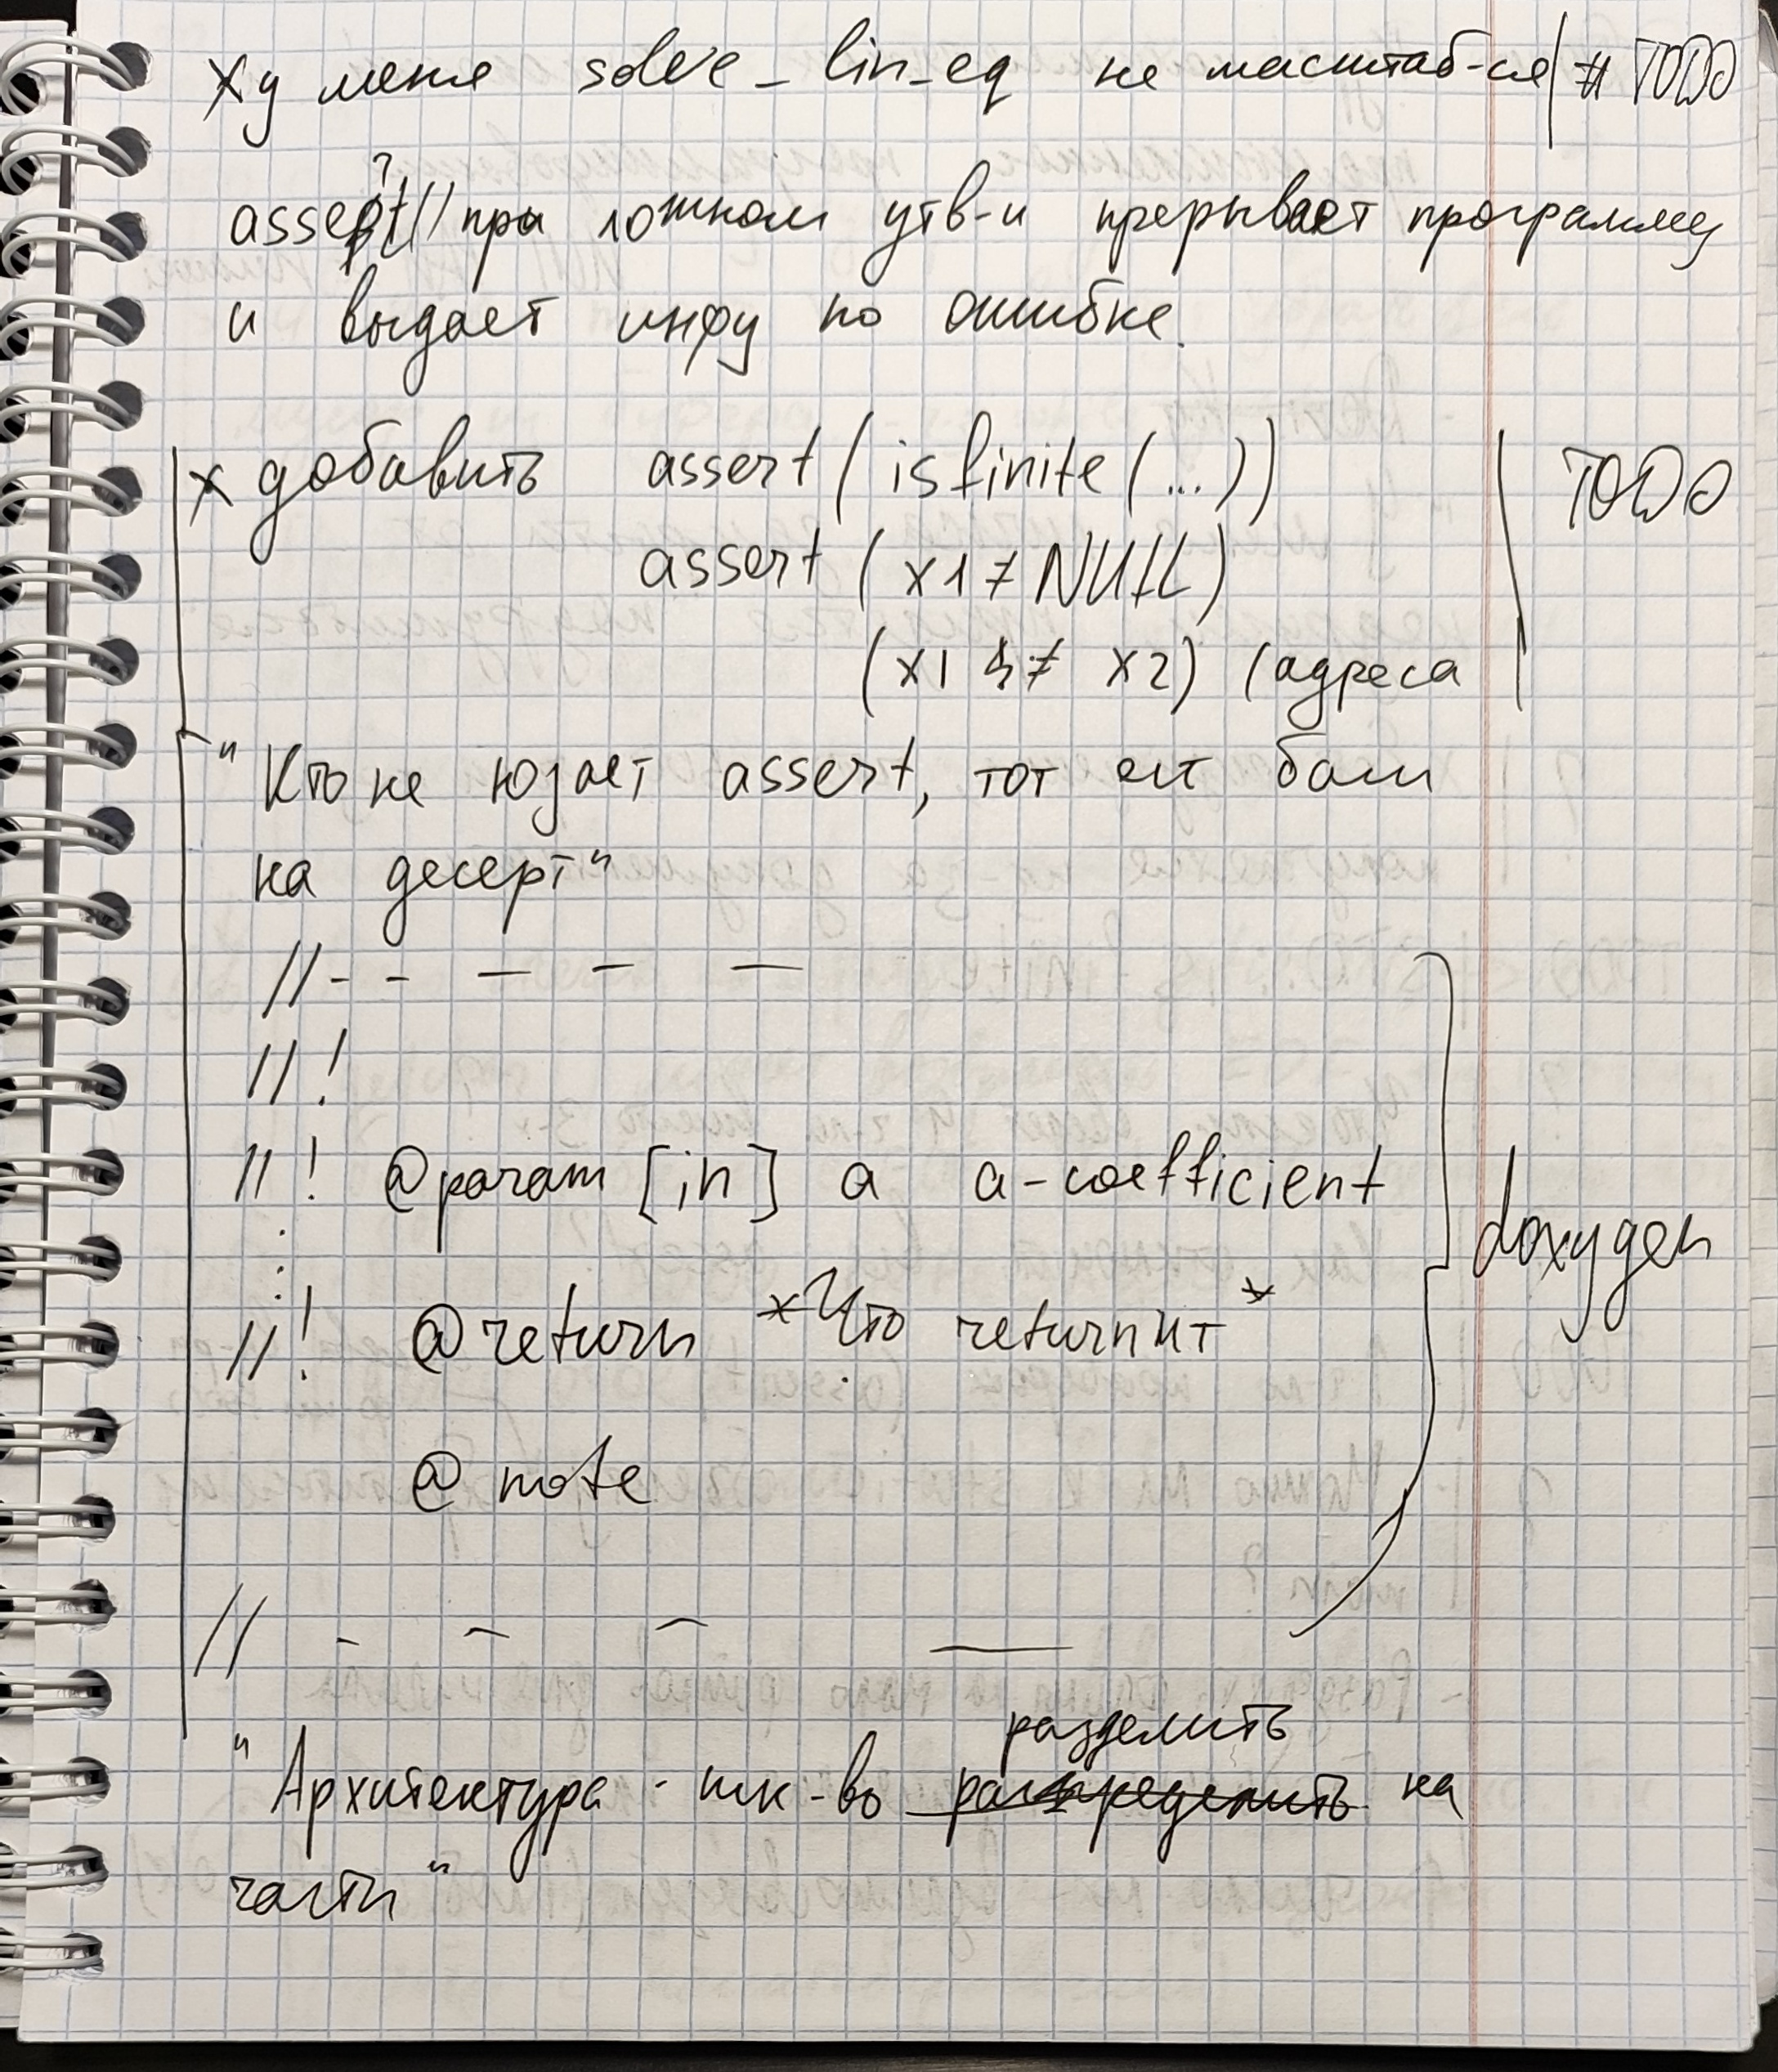 x у меня solve_lin_eq не масштаб-ся | # TODO
assert // при ложном утв-и прерывает программу
и выдает инфу по ошибке.
x добавить assert (isfinite (...)) TODO
assert (x1 ≠ NULL)
(x1 ≠ x2) (адреса
"Кто не юзает assert, тот ест баги
на десерт"
// - - — — —
//!
//! @param [in] a a-coefficient
:
//! @return *Что returnит* doxygen
@ note
// - - - —
разделить
"Архитектура - иск-во распределить на
части"